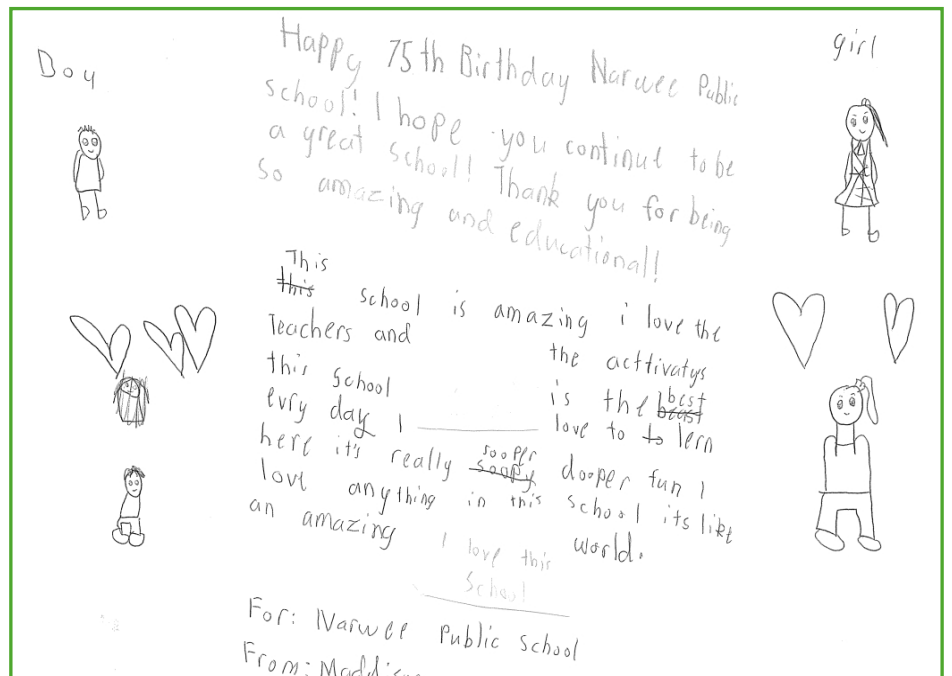 Boy
girl
Happy 75th Birthday Narwee Public
school! I hope you continue to be
a great school! Thank you for being
so amazing and educational!
This
this school is amazing i love the
Teachers and the acttivatys
this school is the best beast
evry day I love to to lern
here it's really sooper soopy dooper fun I
love anything in this school its like
an amazing world.
I love this
School
For: Narwee Public school
From: